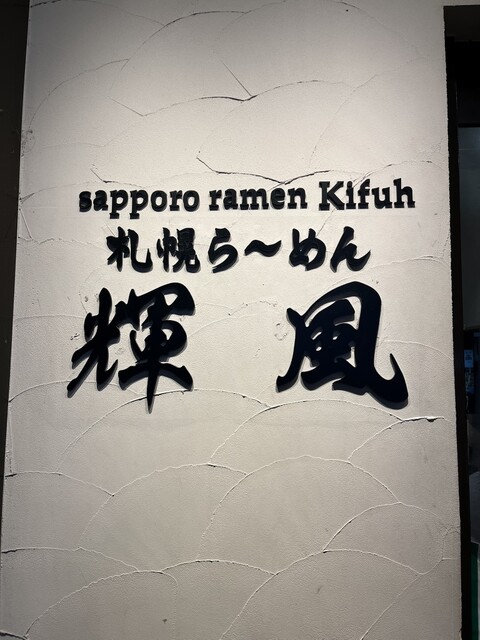 sapporo ramen Kifuh
札幌ら～めん
輝風